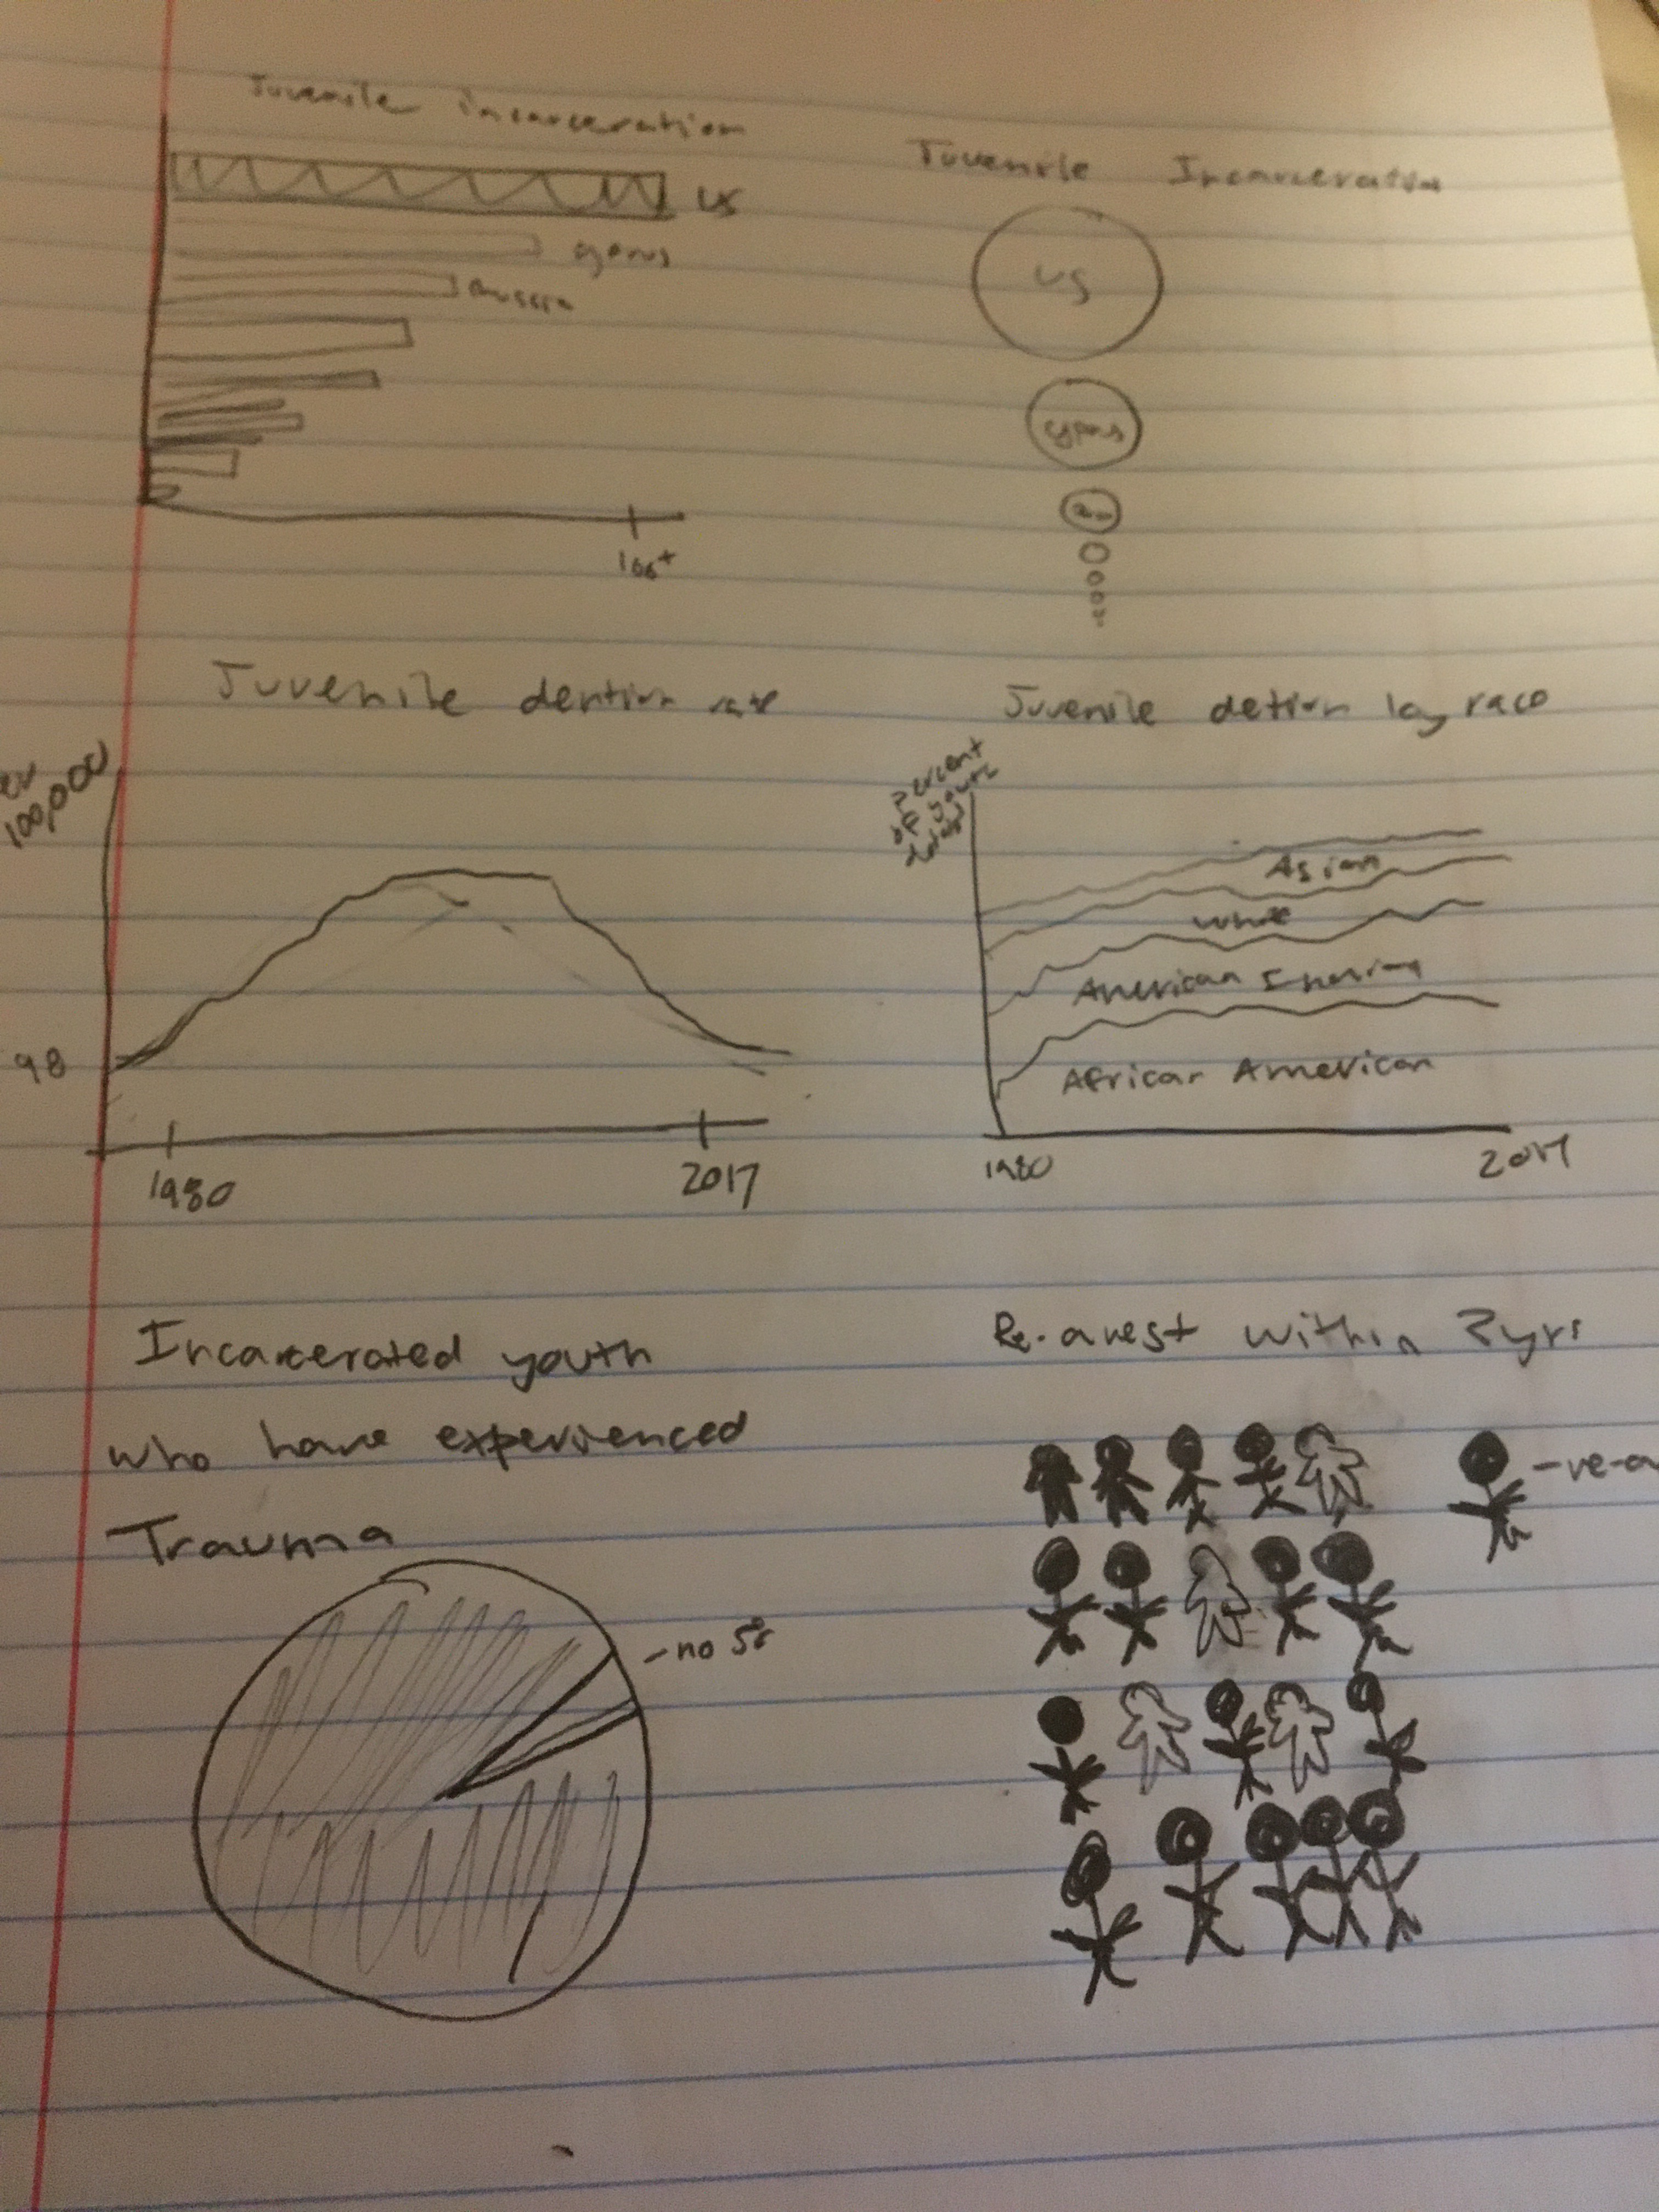 Juvenile incarceration
US
cyprus
Russia
100+
Juvenile Incarceration
US
cyprus
Juvenile dention rate
100,000
98
1980
2017
Juvenile detion by race
Percent
of youth
Asian
White
American
African American
1980
2017
Incarcerated youth
who have experienced
Trauma
-no
Re-arrest within
-re-a